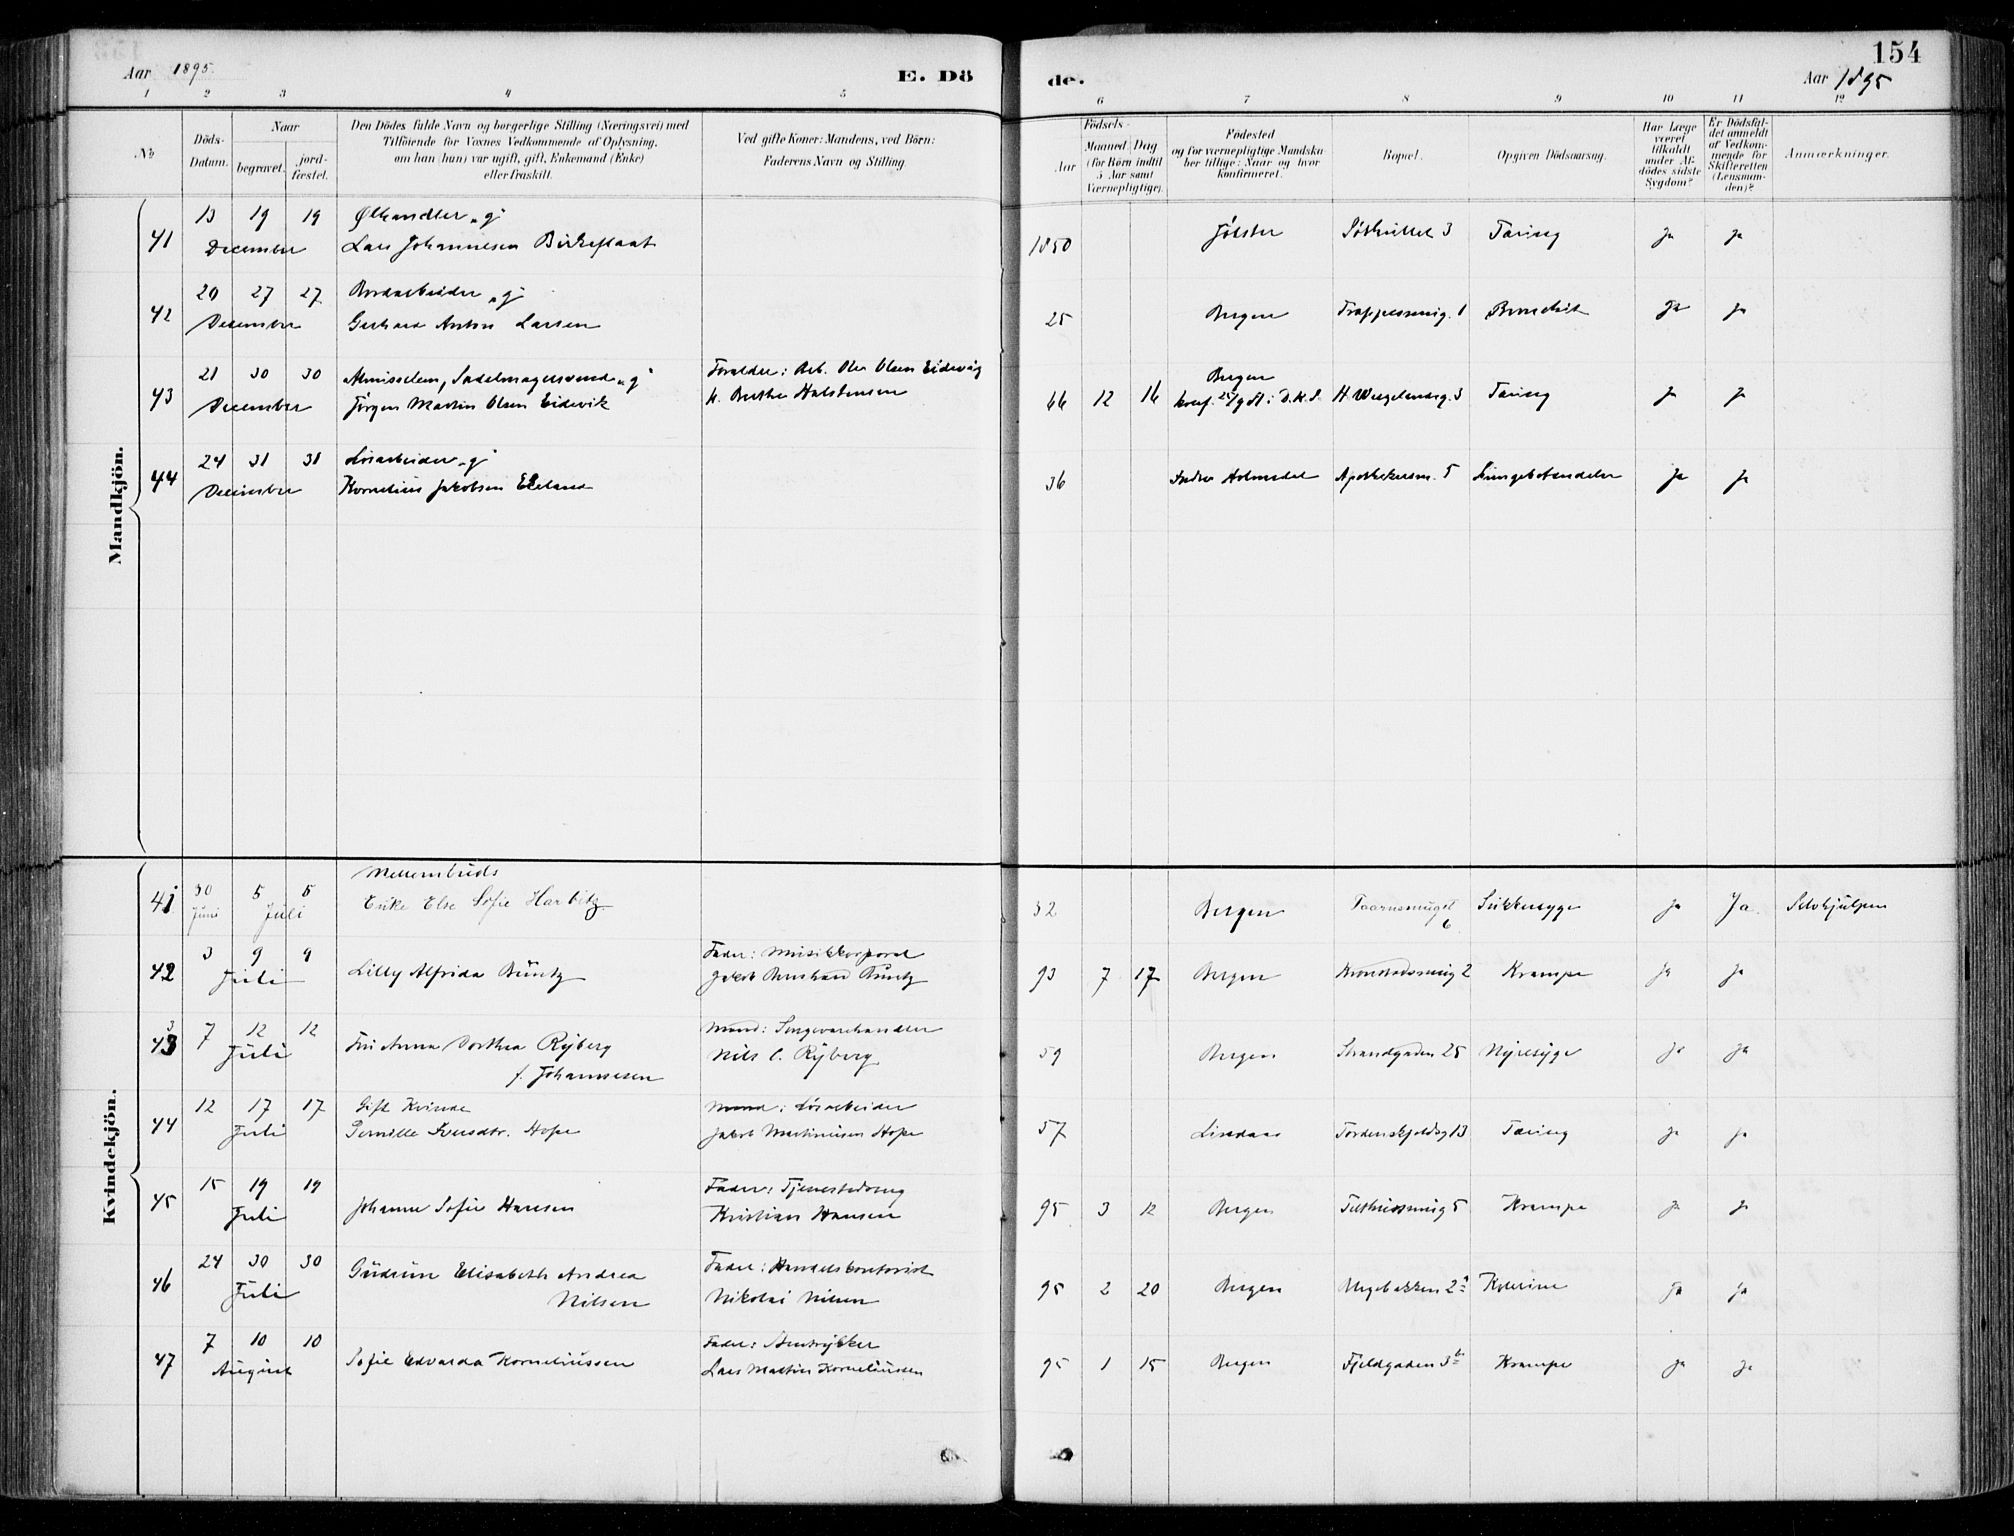 154
Aar 1895.
E. Dö
de.
Aar 1895
1 2 3 4 5
6 7 8 9 10 11 12
No
Döds-Datum.
Naar
begravet.
jord-fæstet.
Den Dödes fulde Navn og borgerlige Stilling (Næringsvei) med
Tilföiende for Voxnes Vedkommende af Oplysning,
om han (hun) var ugift, gift, Enkemand (Enke)
eller fraskilt.
Ved gifte Koner: Mandens, ved Börn:
Faderens Navn og Stilling.
Födsels-
Aar
Maaned
Dag
(for Börn indtil
5 Aar samt
Værnepligtige).
Födested
og for værnepligtige Mandska-
ber tillige: Naar og hvor
konfirmeret.
Bopæl.
Opgiven Dödsaarsag.
Har Læge
været
tilkaldt
under Af-
dödes sidste
Sygdom?
Er Dödsfal-
det anmeldt
af Vedkom-
mende for
Skifteretten
(Lensman-
den)?
Anmærkninger.
Mandkjön.
13 19 19 Ølhandler "g"
41 December Lars Johannesen Birkeflaat 1850 Jølster 3 Tæring Ja Ja
20 27 27 "g"
42 December Gerhard Anton Larsen 25 Bergen 1 Bronchit Ja Ja
21 30 30 Almisselem, Sadelmagersvend "g" Forældre: Arb. Ole Olsen Eidevig
43 December Jørgen Martin Olsen Eidevik H. Berthe Halstensen 66 12 16 Bergen H. Wergelandsg. 3 Tæring Ja Ja
24 31 31 Løsarbeider "g"
44 December Kornelius Jakobsen Eeland 36 Indre Holmedal 5 Lungebetændelse Ja Ja
Kvindekjön.
Mellembuds
41 30 Juni 5 5 Juli Enke Else Sofie Harbitz 32 Bergen Taarnsmuget 6 Sukkersyge Ja Ja Selvhjulpen
3 9 9 Fader: Musikkorporal
42 Juli Lilly Alfrida Büntz Jakob Bernhard Büntz 93 7 17 Bergen 2 Krampe Ja Ja
7 12 12 Mand: Sengevarehandler
43 Juli Fru Anna Dorthea Ryberg Nils C. Ryberg 59 Bergen Strandgaden 25 Nyresyge Ja Ja
f. Johannesen
12 17 17 Gift Kvinde Mand: Løsarbeider
44 Juli Pernille Iversdtr. Hope Jakob Martinusen Hope 57 Lindaas Tordenskjoldsg 13 Tæring Ja Ja
15 19 19 Fader: Tjenestedreng
45 Juli Johanne Sofie Hansen Kristian Hansen 95 3 12 Bergen 5 Krampe Ja Ja
24 30 30 Gudrun Elisabeth Andrea Fader: Handelskontorist
46 Juli Nilsen Nikolai Nilsen 95 2 20 Bergen 2a Kolerine Ja Ja
7 10 10 Fader:
47 August Sofie Edvarda Korneliussen Lars Martin Korneliussen 95 1 15 Bergen Fjeldgaden 3b Krampe Ja Ja